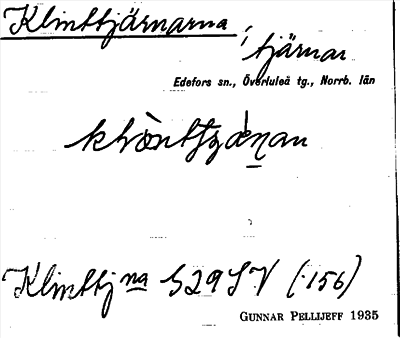 Klinttjärnarna, tjärnar
Edefors sn., Överluleå tg., Norrb. län
Klinttjna 529SV (156)
GUNNAR PELLIJEFF 1935